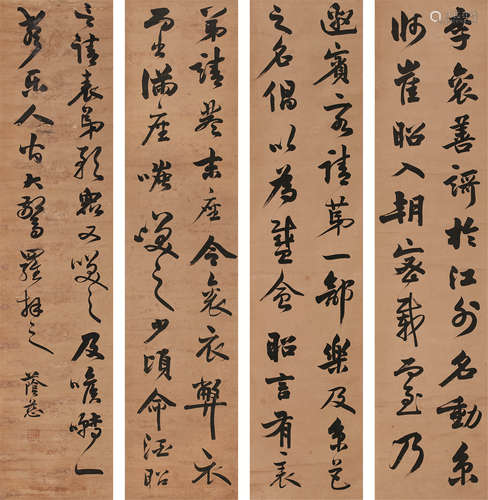 李袞善謌於江外名動京
師崔昭入朝密載至乃
邀賓客請第一部樂及京邑
之名倡以為盛會昭言有表
弟請登末座令袞衣弊衣
而出滿座嗤笑之少頃命酒昭
言請表弟歌眾又笑之及喉囀一
發樂人皆大驚羅拜之